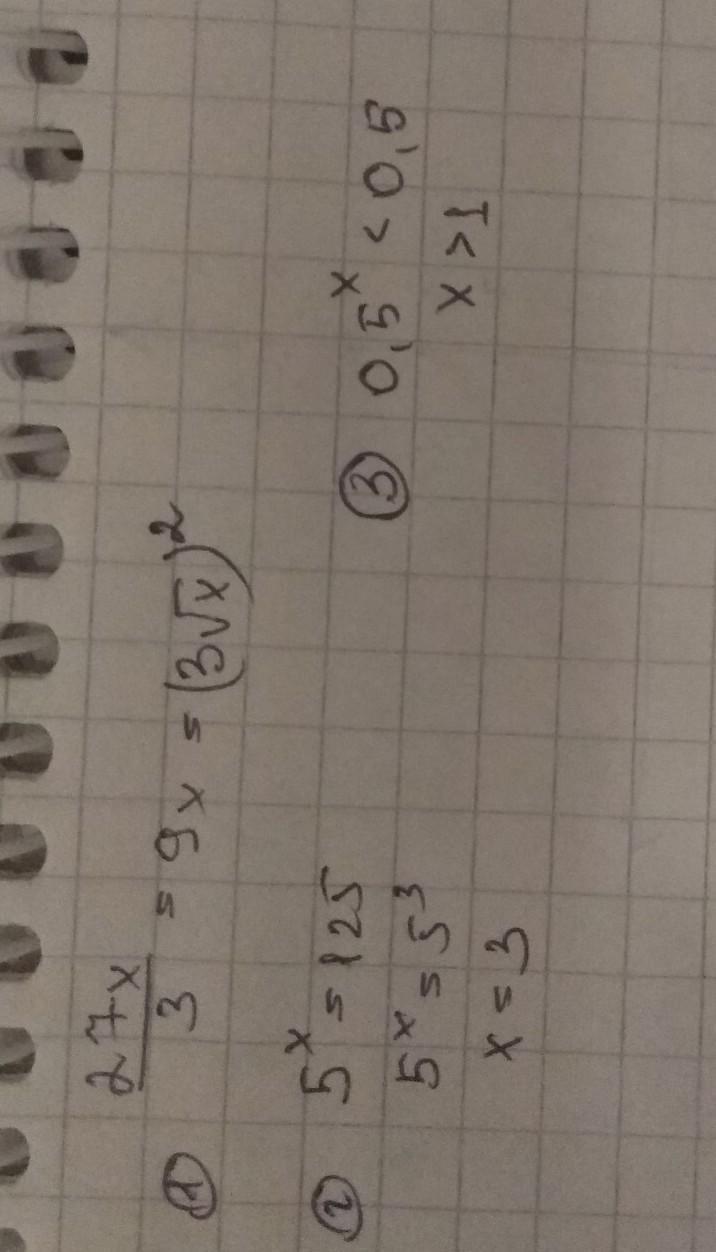 ① 27x/3 = 9x = (3√x)²
② 5ˣ = 125
5ˣ = 5³
x = 3
③ 0,5ˣ < 0,5
x > 1